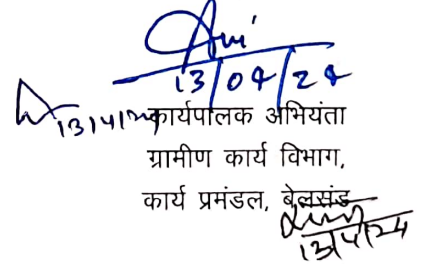 13/04/24
13/4/24
कार्यपालक अभियंता
ग्रामीण कार्य विभाग,
कार्य प्रमंडल, बेलसंड
13/4/24